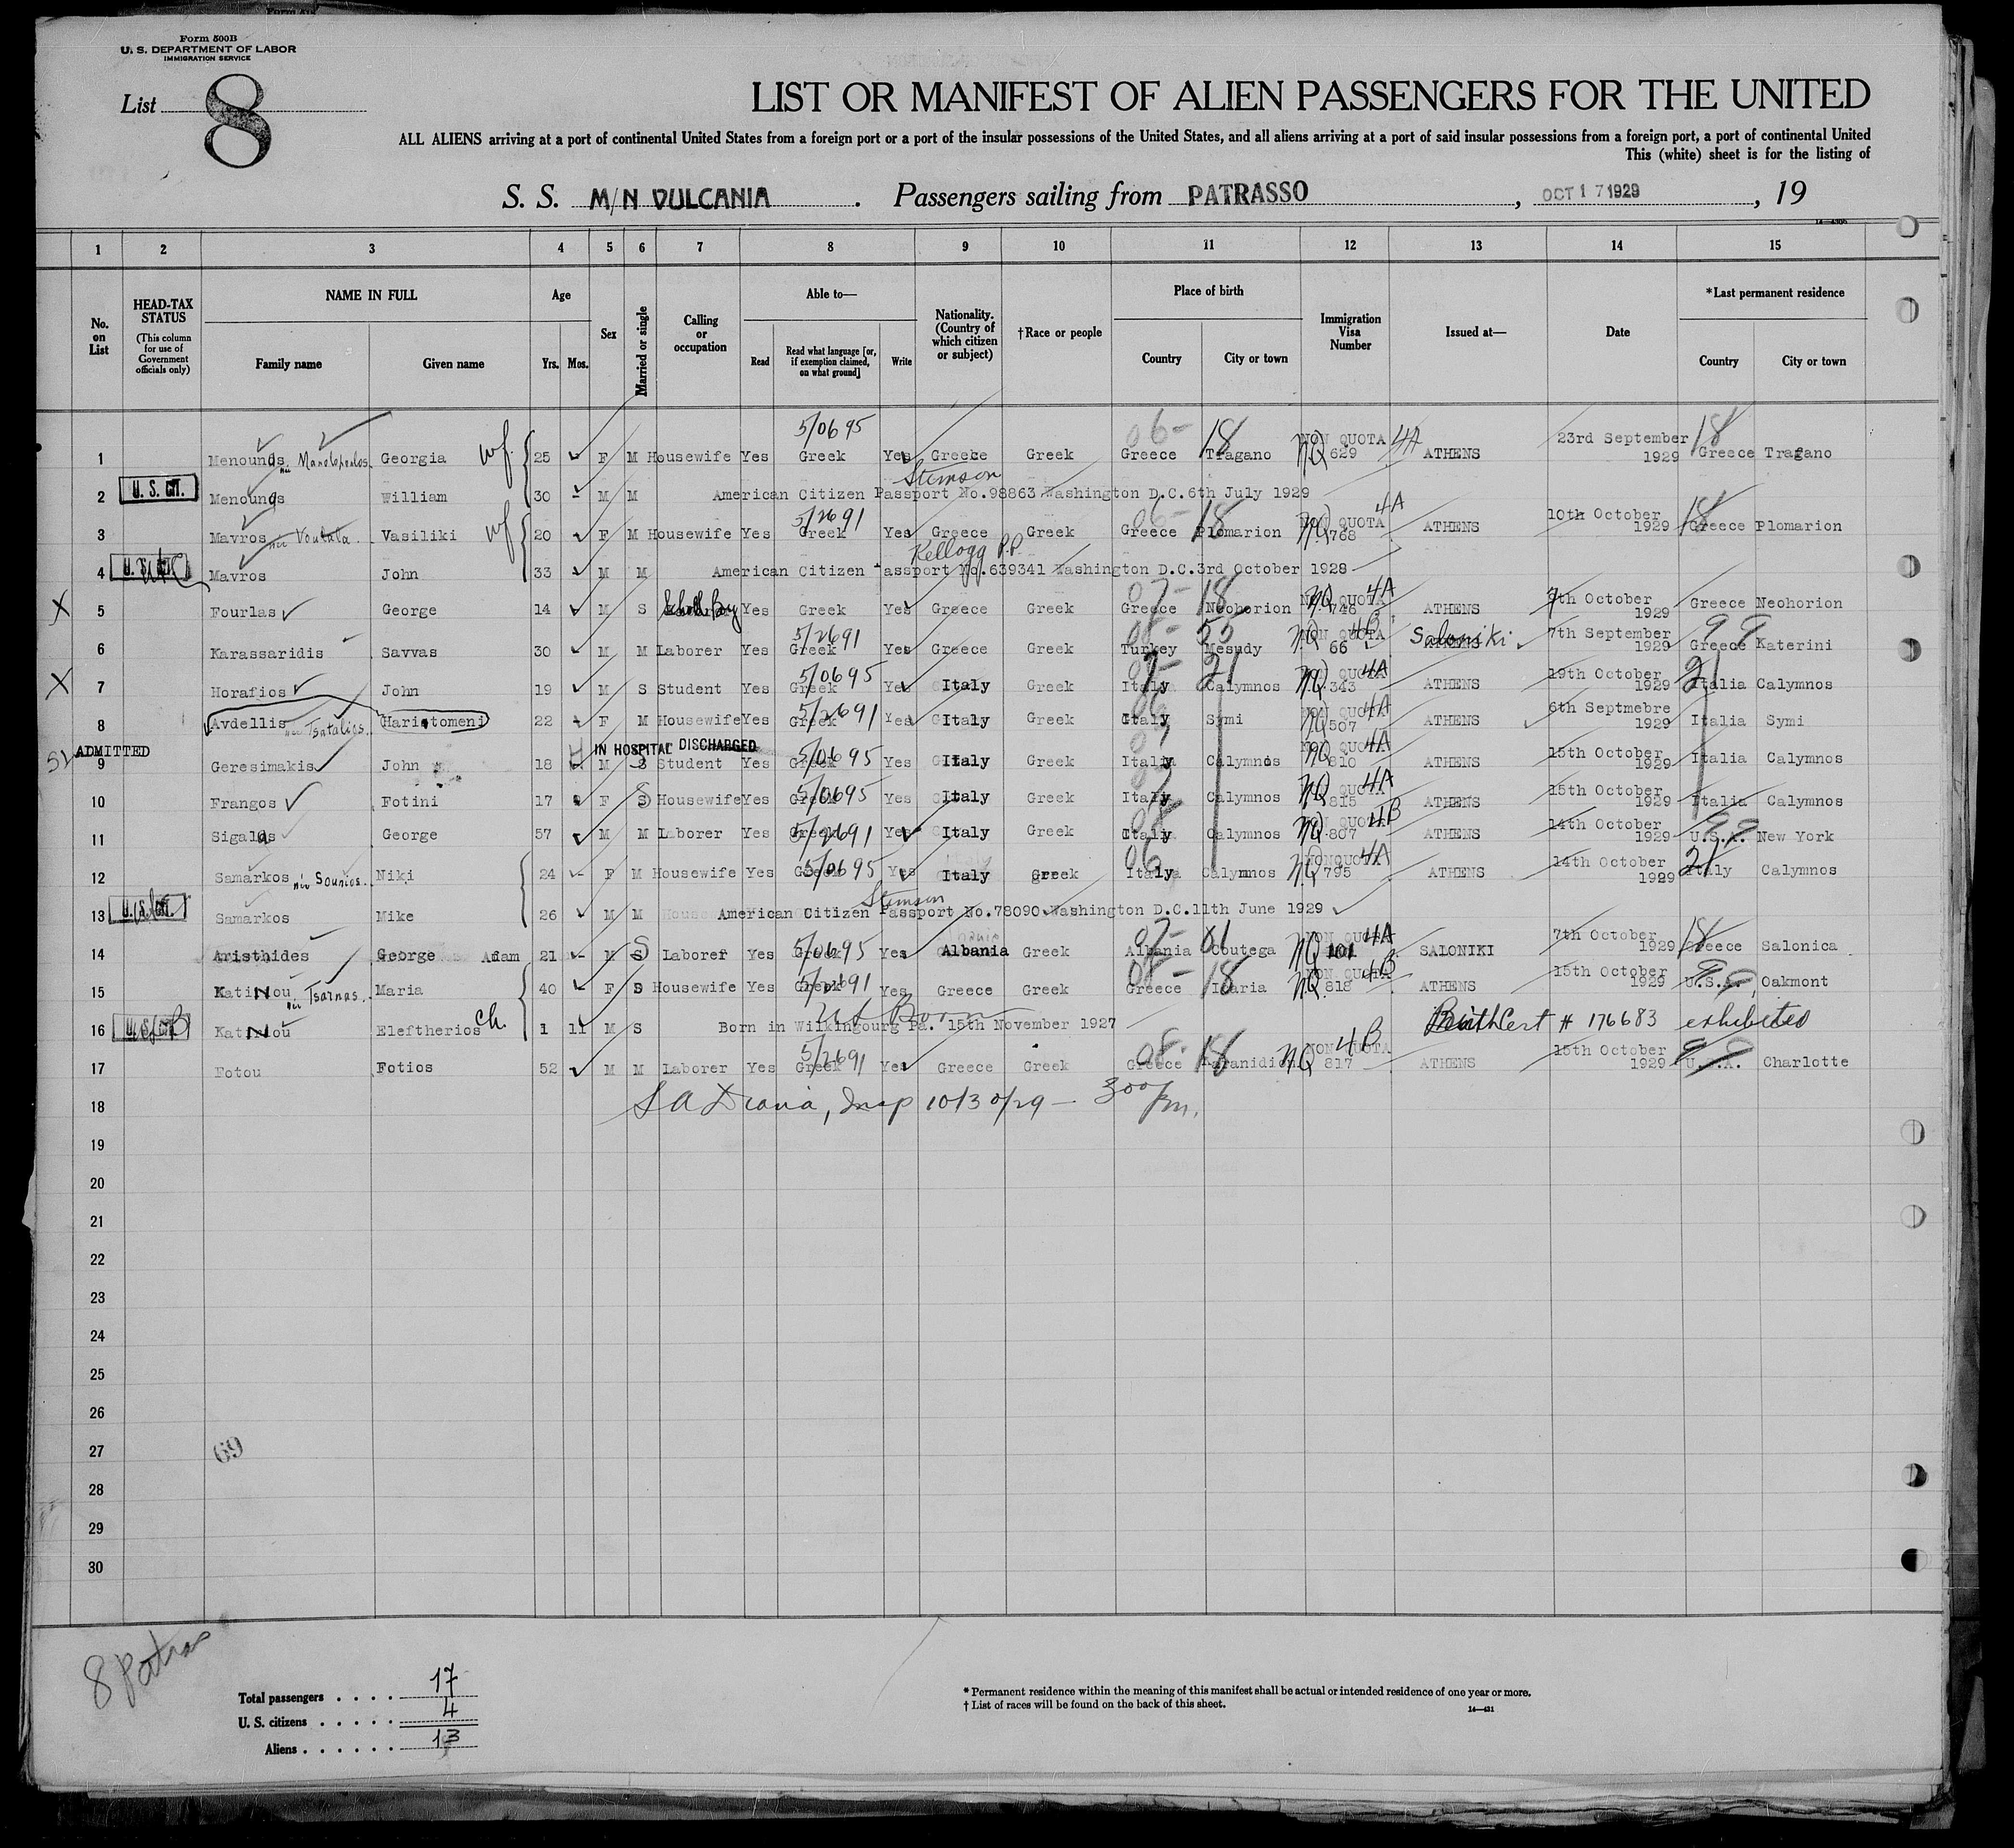 Form 500B
U. S. DEPARTMENT OF LABOR
IMMIGRATION SERVICE
List 8
LIST OR MANIFEST OF ALIEN PASSENGERS FOR THE UNITED
ALL ALIENS arriving at a port of continental United States from a foreign port or a port of the insular possessions of the United States, and all aliens arriving at a port of said insular possessions from a foreign port, a port of continental United
This (white) sheet is for the listing of
S. S. M/N VULCANIA . Passengers sailing from PATRASSO , OCT 17 1929 , 19
1 2 3 4 5 6 7 8 9 10 11 12 13 14 15
No. on List
HEAD-TAX STATUS (This column for use of Government officials only)
NAME IN FULL Family name Given name
Age Yrs. Mos.
Sex
Married or single
Calling or occupation
Able to— Read Read what language [or, if exemption claimed, on what ground] Write
Nationality. (Country of which citizen or subject)
†Race or people
Place of birth Country City or town
Immigration Visa Number
Issued at—
Date
*Last permanent residence Country City or town
5/0695 06- 18 NON QUOTA 4A 23rd September 18
1 Menounos née Manolopoulos Georgia wf. 25 F M Housewife Yes Greek Yes Greece Greek Greece Tragano NQ 629 ATHENS 1929 Greece Tragano
Stimson
2 U. S. CIT. Menounos William 30 M M American Citizen Passport No.98863 Washington D.C.6th July 1929
5/2691 06- 18 NON QUOTA 4A 10th October 18
3 Mavros née Voulala Vasiliki wf 20 F M Housewife Yes Greek Yes Greece Greek Greece Plomarion NQ 768 ATHENS 1929 Greece Plomarion
Kellogg P.P.
4 U. S. CIT. Mavros John 33 M M American Citizen Passport No.639341 Washington D.C.3rd October 1928
07- 18 NON QUOTA 4A
X 5 Fourlas George 14 M S School Boy Yes Greek Yes Greece Greek Greece Neohorion NQ 746 ATHENS 7th October 1929 Greece Neohorion
5/2691 08- 55 NON QUOTA 4B 7th September 99
6 Karassaridis Savvas 30 M M Laborer Yes Greek Yes Greece Greek Turkey Mesudy NQ 66 Saloniki 1929 Greece Katerini
5/0695 21 4A 19th October 21
X 7 Horafios John 19 M S Student Yes Greek Yes Italy Greek Italy Calymnos NQ 343 ATHENS 1929 Italia Calymnos
5/2691 06 4A 6th Septmebre
8 Avdellis née Tsatalios Haristomeni 22 F M Housewife Yes Greek Yes Italy Greek Italy Symi NQ 507 ATHENS 1929 Italia Symi
ADMITTED IN HOSPITAL DISCHARGED 5/0695 4A 15th October
9 Geresimakis John 18 M S Student Yes Greek Yes Italy Greek Italy Calymnos NQ 810 ATHENS 1929 Italia Calymnos
5/0695 4A 15th October
10 Frangos Fotini 17 F S Housewife Yes Greek Yes Italy Greek Italy Calymnos NQ 815 ATHENS 1929 Italia Calymnos
5/2691 08 4B 14th October 99
11 Sigalas George 57 M M Laborer Yes Greek Yes Italy Greek Italy Calymnos NQ 807 ATHENS 1929 U.S.A. New York
5/0695 06 NONQUOTA 4A 14th October 21
12 Samarkos née Sounios Niki 24 F M Housewife Yes Greek Yes Italy Greek Italy Calymnos NQ 795 ATHENS 1929 Italy Calymnos
Stimson
13 U. S. CIT. Samarkos Mike 26 M M American Citizen Passport No.78090 Washington D.C.11th June 1929
5/0695 07- 01 NON QUOTA 4A 7th October 18
14 Aristhides George Adam 21 M S Laborer Yes Greek Yes Albania Greek Albania Coutega NQ 101 SALONIKI 1929 Greece Salonica
5/2691 08- 18 NON QUOTA 4B 15th October 99
15 Katiniou née Tsarnas Maria 40 F S Housewife Yes Greek Yes Greece Greek Greece Icaria NQ 818 ATHENS 1929 U.S.A., Oakmont
US Born
16 Katiniou Eleftherios ch. 1 11 M S Born in Wilkingourg Pa. 15th November 1927 Birth Cert # 176683 exhibited
5/2691 08- 18 NON QUOTA 4B 15th October 99
17 Fotou Fotios 52 M M Laborer Yes Greek Yes Greece Greek Greece Karanidion NQ 817 ATHENS 1929 U.S.A. Charlotte
18 Insp 10/30/29 — 3 00 pm.
19
20
21
22
23
24
25
26
27 69
28
29
30
8 Patras
Total passengers . . . . 17
U. S. citizens . . . . . 4
Aliens . . . . . . 13
* Permanent residence within the meaning of this manifest shall be actual or intended residence of one year or more.
† List of races will be found on the back of this sheet.
14—431